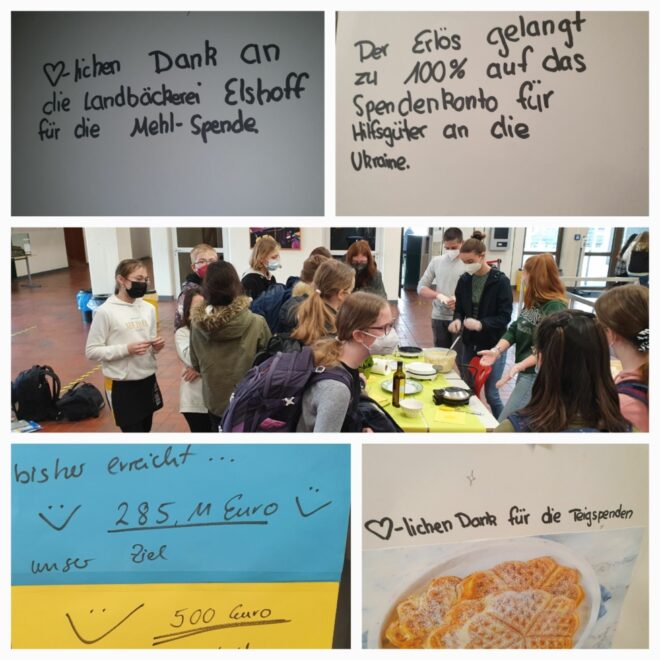 ♡-lichen Dank an
die Landbäckerei Elshoff
für die Mehl-Spende.
Der Erlös gelangt
zu 100% auf das
Spendenkonto für
Hilfsgüter an die
Ukraine.
bisher erreicht ...
285,11 Euro
unser Ziel
500 Euro
♡-lichen Dank für die Teigspenden